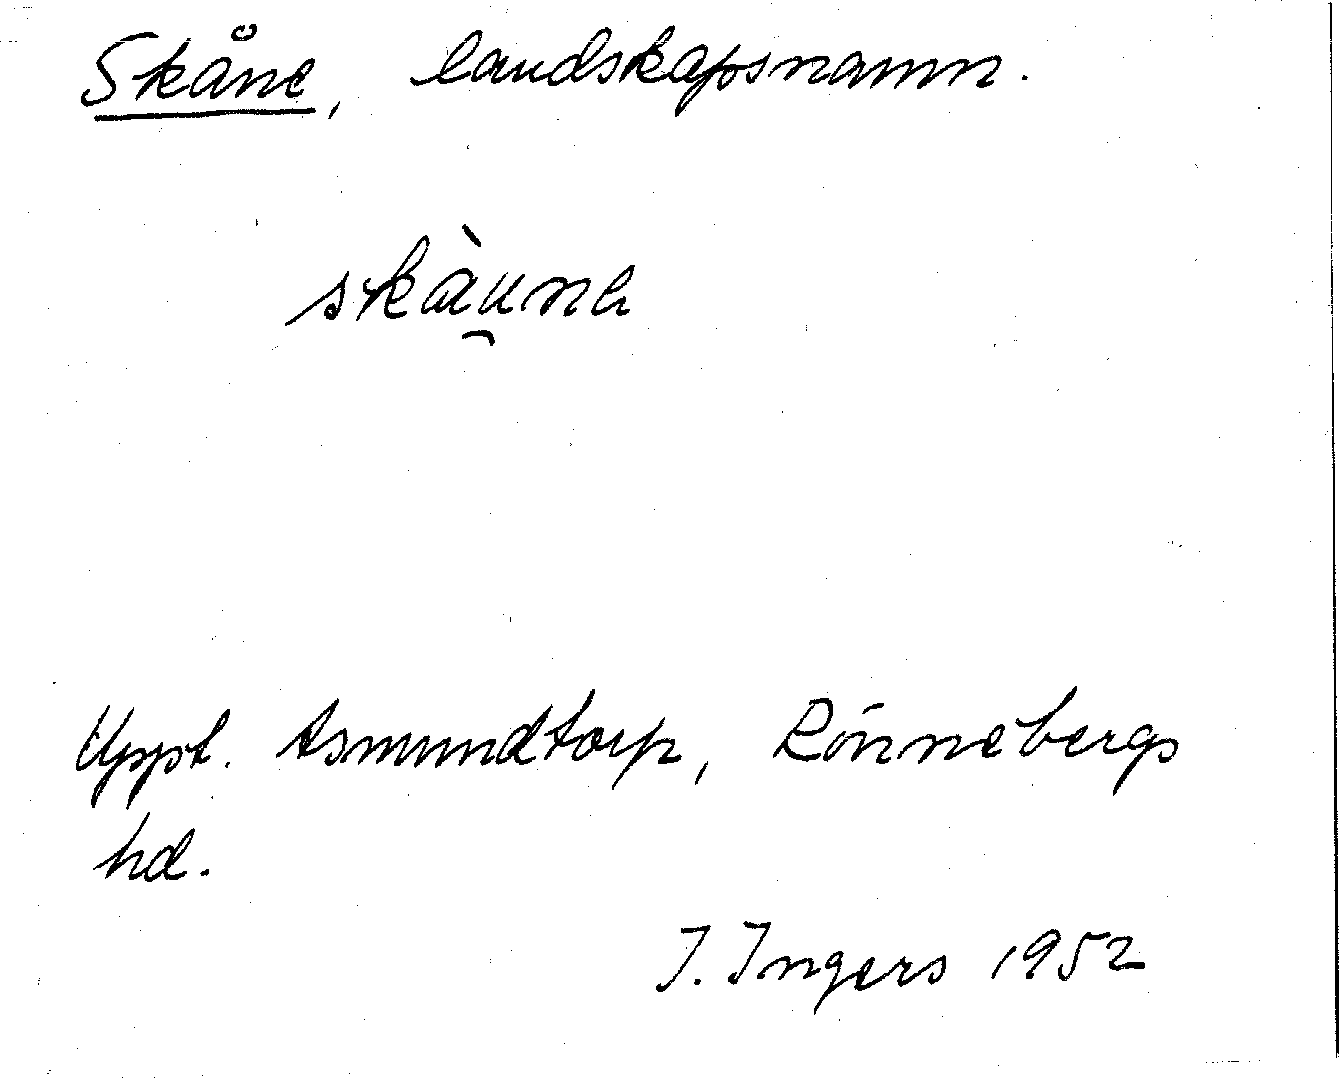 Skåne, landskapsnamn.
skàu̯na
Uppt. Asmundtorp, Rönnebergs
hd.
I. Ingers 1952